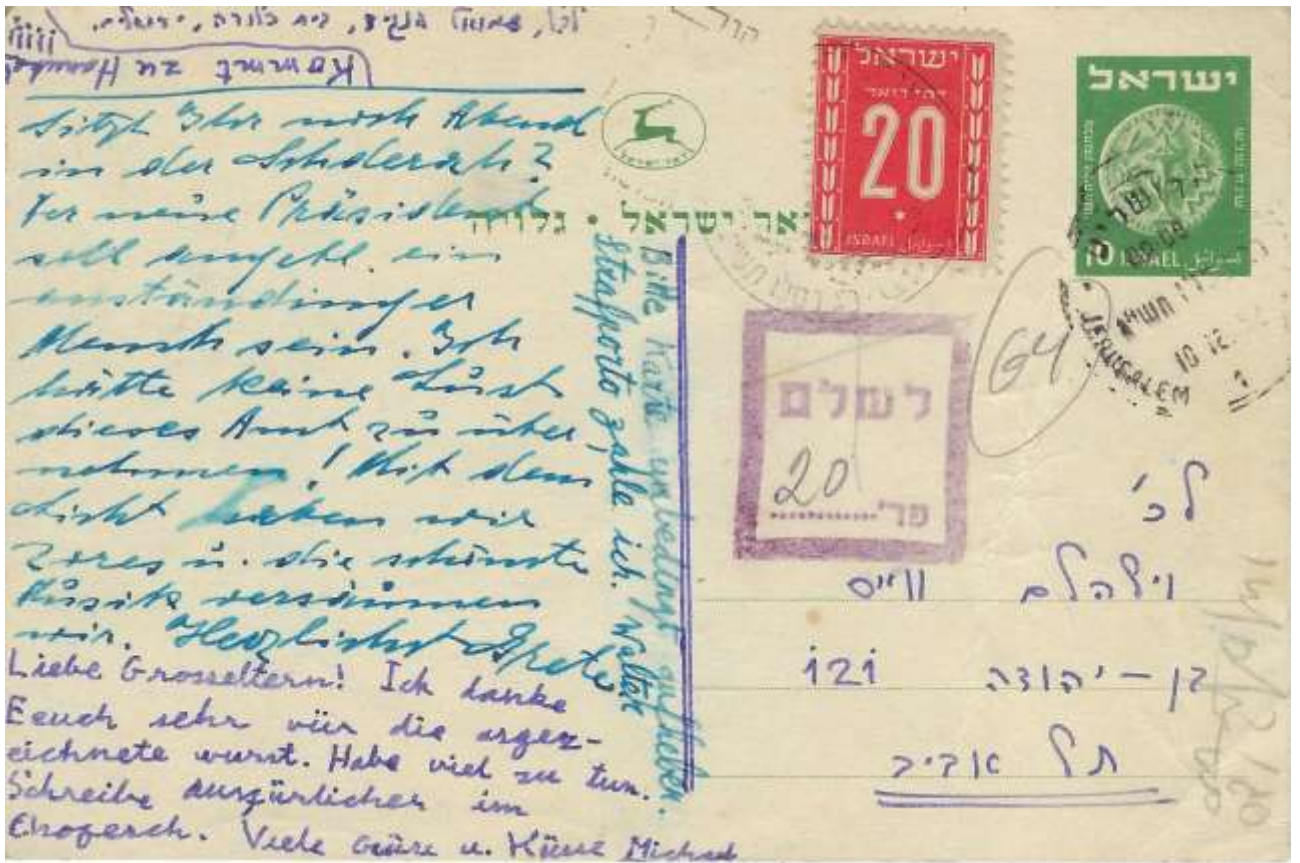 Kommt zu Hanuka!
Sitzt Ihr noch Abend
in der Schderah?
Der neue Präsident
soll angebl. ein
anständiger
Mensch sein. Ich
hätte keine Lust
dieses Amt zu über
nehmen! Mit dem
Licht haben wir
Zores u. die schönste
Musik versäumen
wir. Herzlichst Grete
Liebe Grosseltern! Ich danke
Eeuch sehr vür die ausgez-
eichnete wurst. Habe viel zu tun.
Schreibe ausgürlicher im
Viele Grüse u. Küsse Michael
Bitte Karte unbedingt aufheben.
Strafporto zahle ich. Walter
דואר ישראל • גלויה
ישראל
דמי דואר
20
ISRAEL
ישראל
10 ISRAEL
ירושלים
JERUSALEM
10 12
לשלם
20
פר'
64
לכ'
וילהלם ווייס
בן-יהודה 121
תל אביב